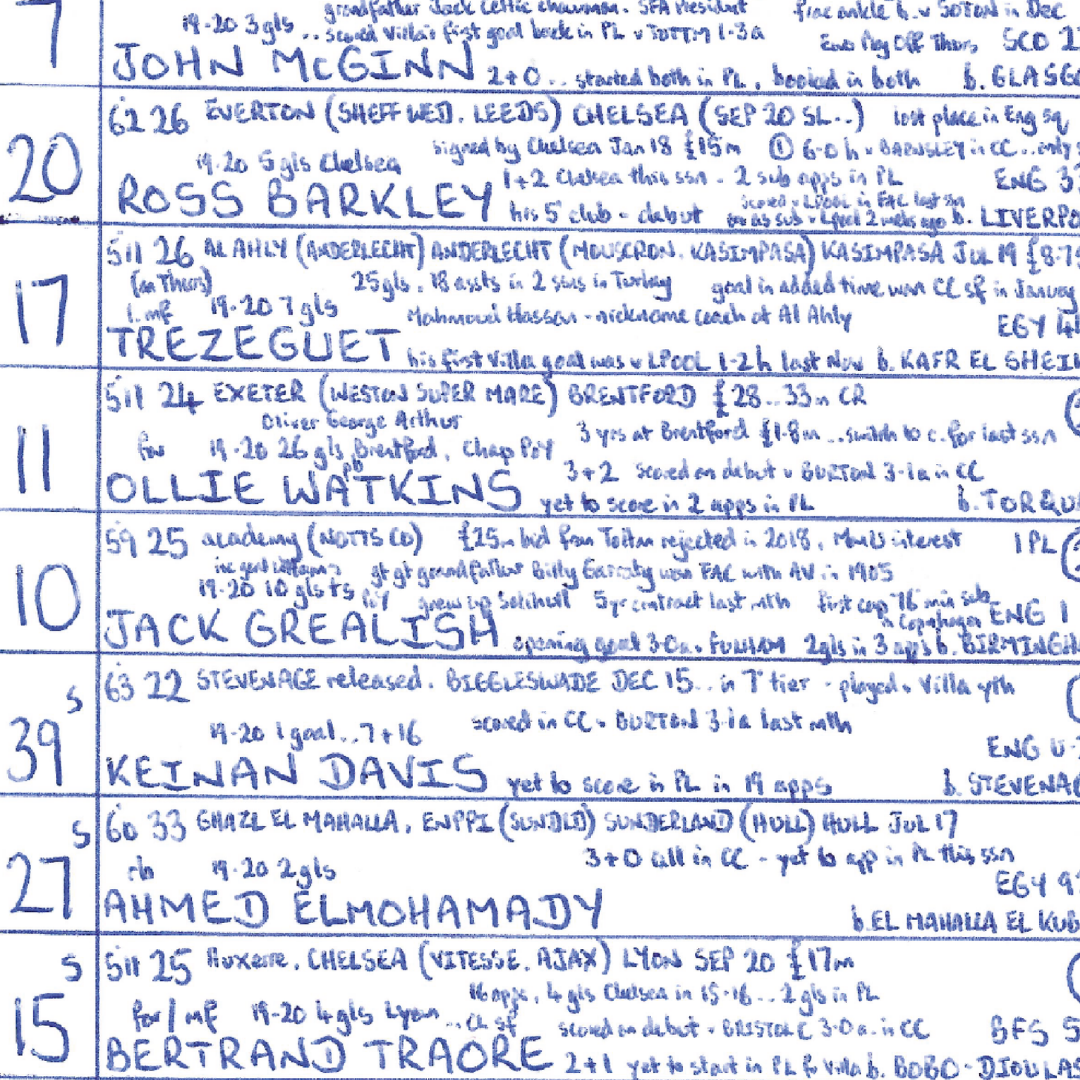 7
grandfather Jack Celtic chairman. SFA President frac ankle h. v SOTON in Dec
19-20 3 gls .. scored Villa's first goal back in PL v TOTTM 1-3 a Euro Play Off Thurs SCO 2
JOHN McGINN 2+0.. started both in PL, booked in both b. GLASG
20
62 26 EVERTON (SHEFF WED. LEEDS) CHELSEA (SEP 20 SL..) lost place in Eng sq
signed by Chelsea Jan 18 £15m ① 6-0 h v BARNSLEY in CC.. only
19-20 5 gls Chelsea 1+2 Chelsea this ssn - 2 sub apps in PL ENG 33
scored v LPOOL in FAC last ssn
ROSS BARKLEY his 5 club - debut as sub v Lpool 2 weeks ago b. LIVERPO
17
511 26 AL AHLY (ANDERLECHT) ANDERLECHT (MOUSCRON. KASIMPASA) KASIMPASA JUL 19 £8.75
(on Thurs) 25 gls. 18 assts in 2 ssns in Turkey goal in added time won CC sf in January
l. mf 19-20 7 gls Mahmoud Hassan - nickname coach at Al Ahly EGY 4
TREZEGUET his first Villa goal was v LPOOL 1-2 h last Nov b. KAFR EL SHEI
11
511 24 EXETER (WESTON SUPER MARE) BRENTFORD £28..33m CR
Oliver George Arthur 3 yrs at Brentford £1.8m ..switch to c. for last ssn
for 19-20 26 gls Brentford, Chap PoY
pb 3+2 scored on debut v BURTON 3-1 a in CC
OLLIE WATKINS yet to score in 2 apps in PL b. TORQU
10
59 25 academy (NOTTS CO) £25m bid from Tottm rejected in 2018. ManU interest 1 PL
gt gt grandfather Billy Garraty won FAC with AV in 1905
19-20 10 gls ts PoY grew up Solihull 5 yr contract last mth first cap 76 min sub
in Copenhagen ENG 1
JACK GREALISH opening goal 3-0 a v FULHAM 2 gls in 3 apps b. BIRMINGHA
39 S
63 22 STEVENAGE released. BIGGLESWADE DEC 15.. in 7 tier - played v Villa yth
19-20 1 goal..7+16 scored in CC v BURTON 3-1 a last mth
ENG U-
KEINAN DAVIS yet to score in PL in 19 apps b. STEVENAG
27 S
60 33 GHAZL EL MAHALLA, ENPPI (SUNDLD) SUNDERLAND (HULL) HULL JUL 17
rb 19-20 2 gls 3+0 all in CC - yet to app in PL this ssn
EGY 9
AHMED ELMOHAMADY b. EL MAHALLA EL KUB
15 S
511 25 Auxerre, CHELSEA (VITESSE. AJAX) LYON SEP 20 £17m
16 apps, 4 gls Chelsea in 15-16.. 2 gls in PL
for/mf 19-20 4 gls Lyon ..CL sf scored on debut v BRISTOL C 3-0 a. in CC BFS 5
BERTRAND TRAORE 2+1 yet to start in PL for Villa b. BOBO-DIOULAS